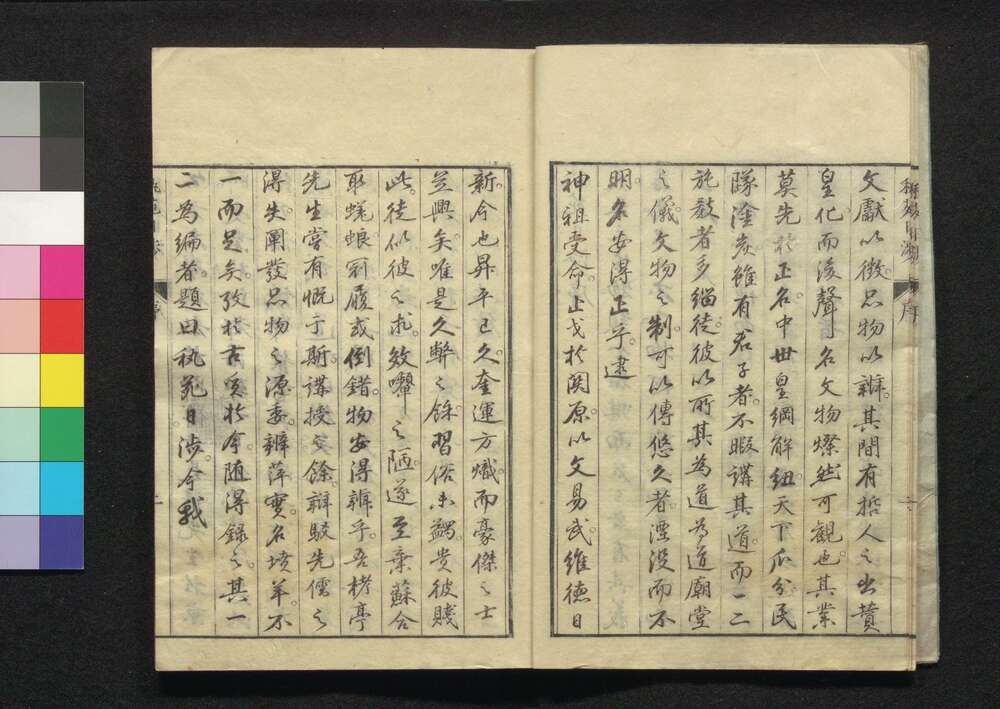 文獻以徴。品物以辨。其間有哲人之出賛
皇化而後聲名文物燦然可觀也。其業
莫先於正名。中世皇綱解紐。天下瓜分。民
墜塗炭。雖有君子者。不暇講其道。而一二
施教者多緇徒。彼以所其為道為道。廟堂
之儀文物之制。可以傳悠久者。湮没而不
明。名安得正乎。逮
神祖受命。止戈於関原。以文易武。維德日
新。今也昇平已久。奎運方熾。而豪傑之士
並興矣。唯是久弊之餘。習俗未蠲。貴彼賤
此。徒似彼之求。效嚬之陋。遂至棄蘇合
取蜣蜋。冠履或倒錯。物安得辨乎。吾栲亭
先生嘗有慨于斯。講授之餘。辯駁先儒之
得失。闡發品物之源委。辨萍實。名墳羊。不
一而足矣。攷於古。質於今。随得録之。其一
二為編者。題曰秇苑日渉。今我
秇苑日渉 序
二